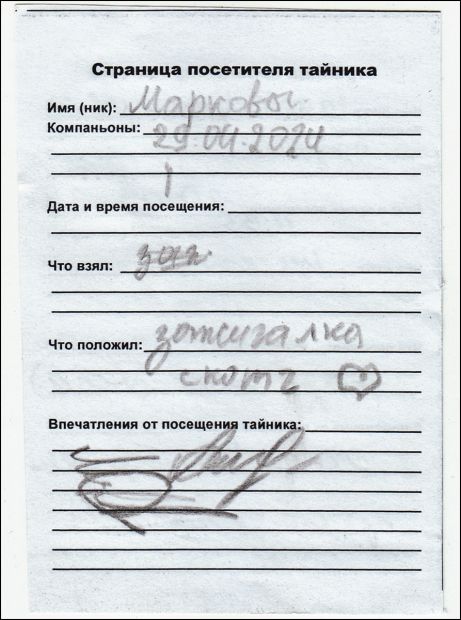 Страница посетителя тайника
Имя (ник): Марковы
Компаньоны: 29.04.2024
Дата и время посещения:
Что взял:
Что положил: зажигалка
скотч
Впечатления от посещения тайника: